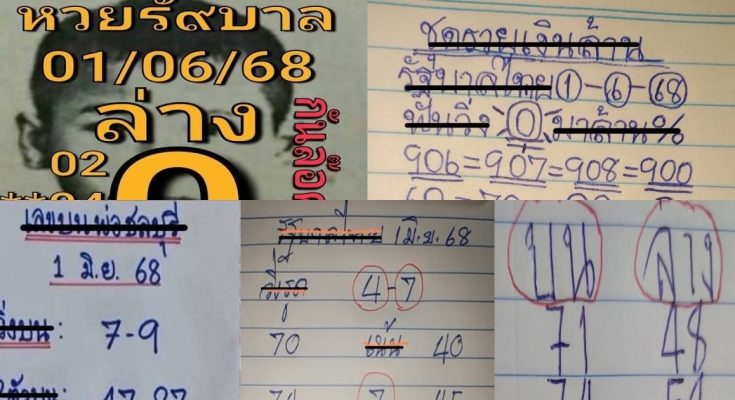 หวยรั๙บาล
01/06/68
ล่าง
02
0
กันลอต
ชุดรวยเงินล้าน
รัฐบาลไทย 1-6-68
ฟันวิ่ง 0 บาล้าน%
906=907=908=900
เลขบนพ่อชลบุรี
1 มิ.ย. 68
วิ่งบน: 7-9
1 มิ.ย. 68
4-7
70 เน้น 40
7
บน ล่าง
71 48
74 51